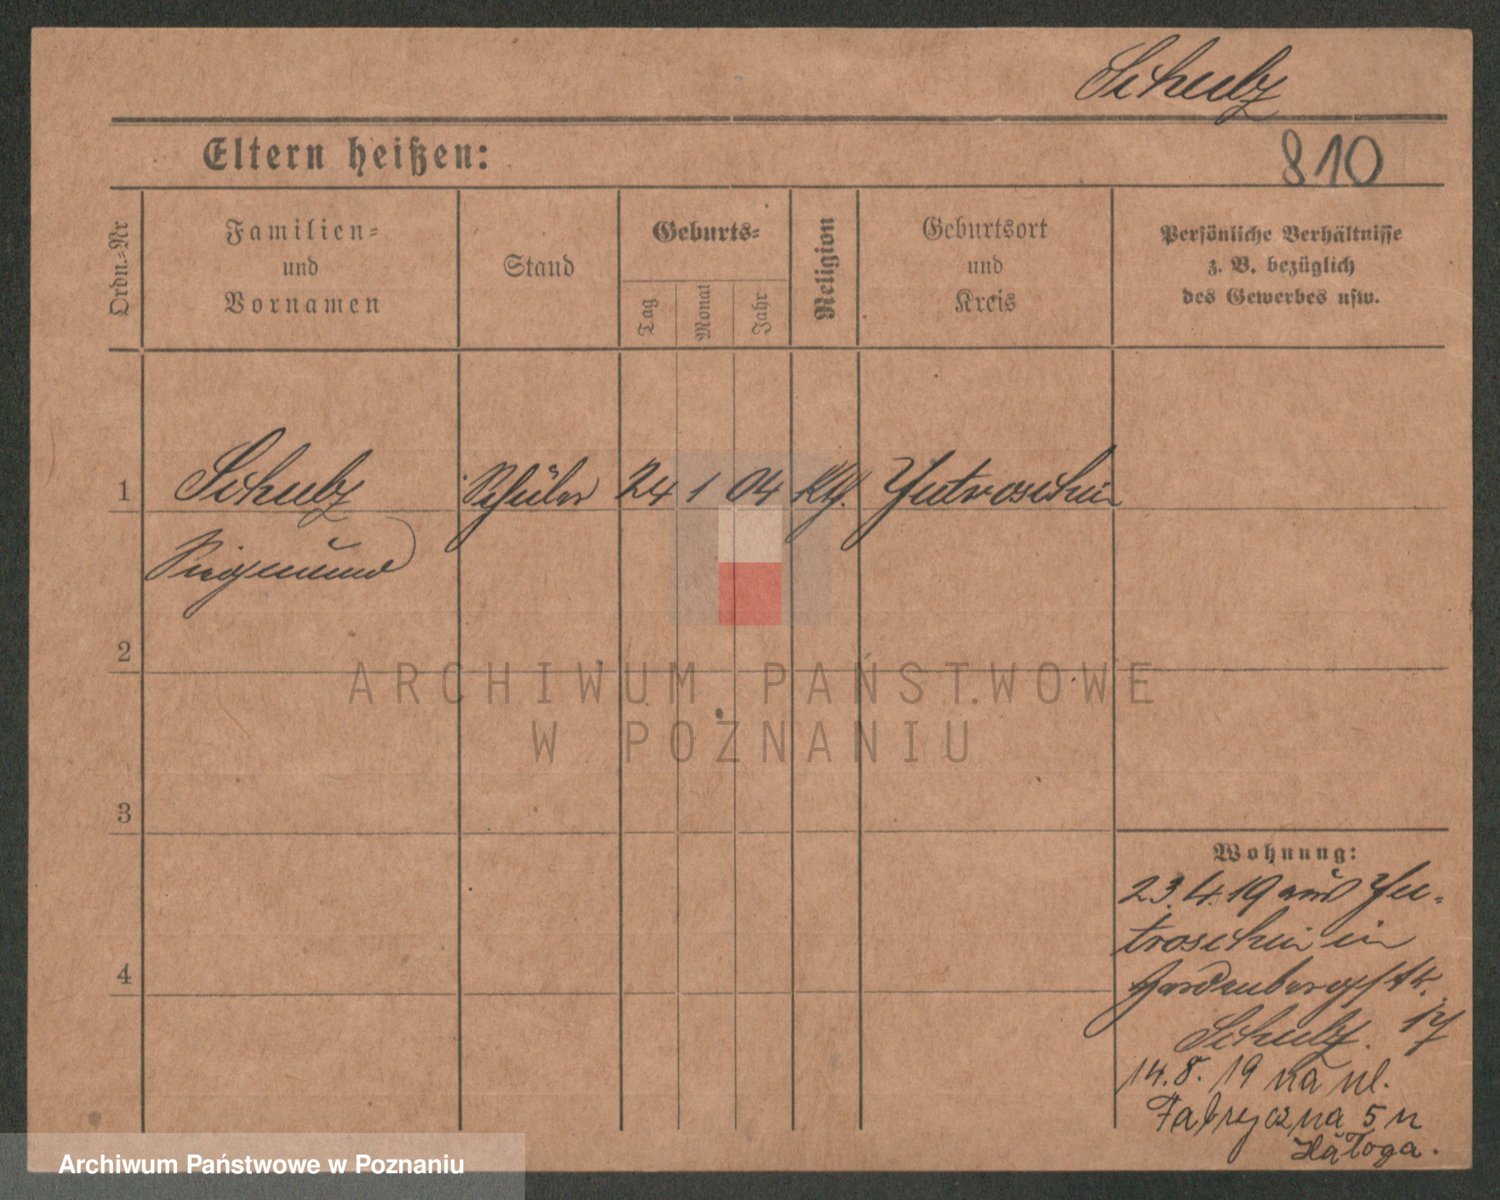 Schulz
810
Eltern heißen:
Ordn.-Nr
Familien-
und
Vornamen
Stand
Geburts-
Tag
Monat
Jahr
Religion
Geburtsort
und
Kreis
Persönliche Verhältnisse
z. B. bezüglich
des Gewerbes usw.
1 Schulz Schüler 24 1 04 kth. Jutroschin
Siegmund
2
ARCHIWUM PAŃSTWOWE
W POZNANIU
3
4
Wohnung:
23.4.19 aus Ju-
troschin in
Hardenbergstr.
Schulz. 17
14.8.19 na ul.
Fabryczna 5 u
Archiwum Państwowe w Poznaniu